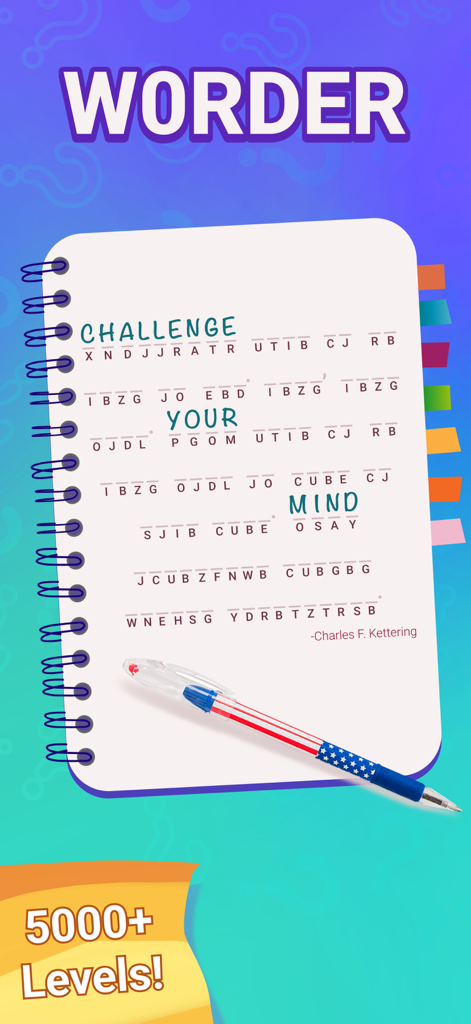 WORDER
CHALLENGE
XNDJJRATR UTIB CJ RB
IBZG JO EBD. IBZG' IBZG
YOUR
OJDL. PGOM UTIB CJ RB
IBZG OJDL JO CUBE CJ
MIND
SJIB CUBE. OSAY
JCUBZFNWB CUBGBG
WNEHSG YDRBTZTRSB.
-Charles F. Kettering
5000+
Levels!